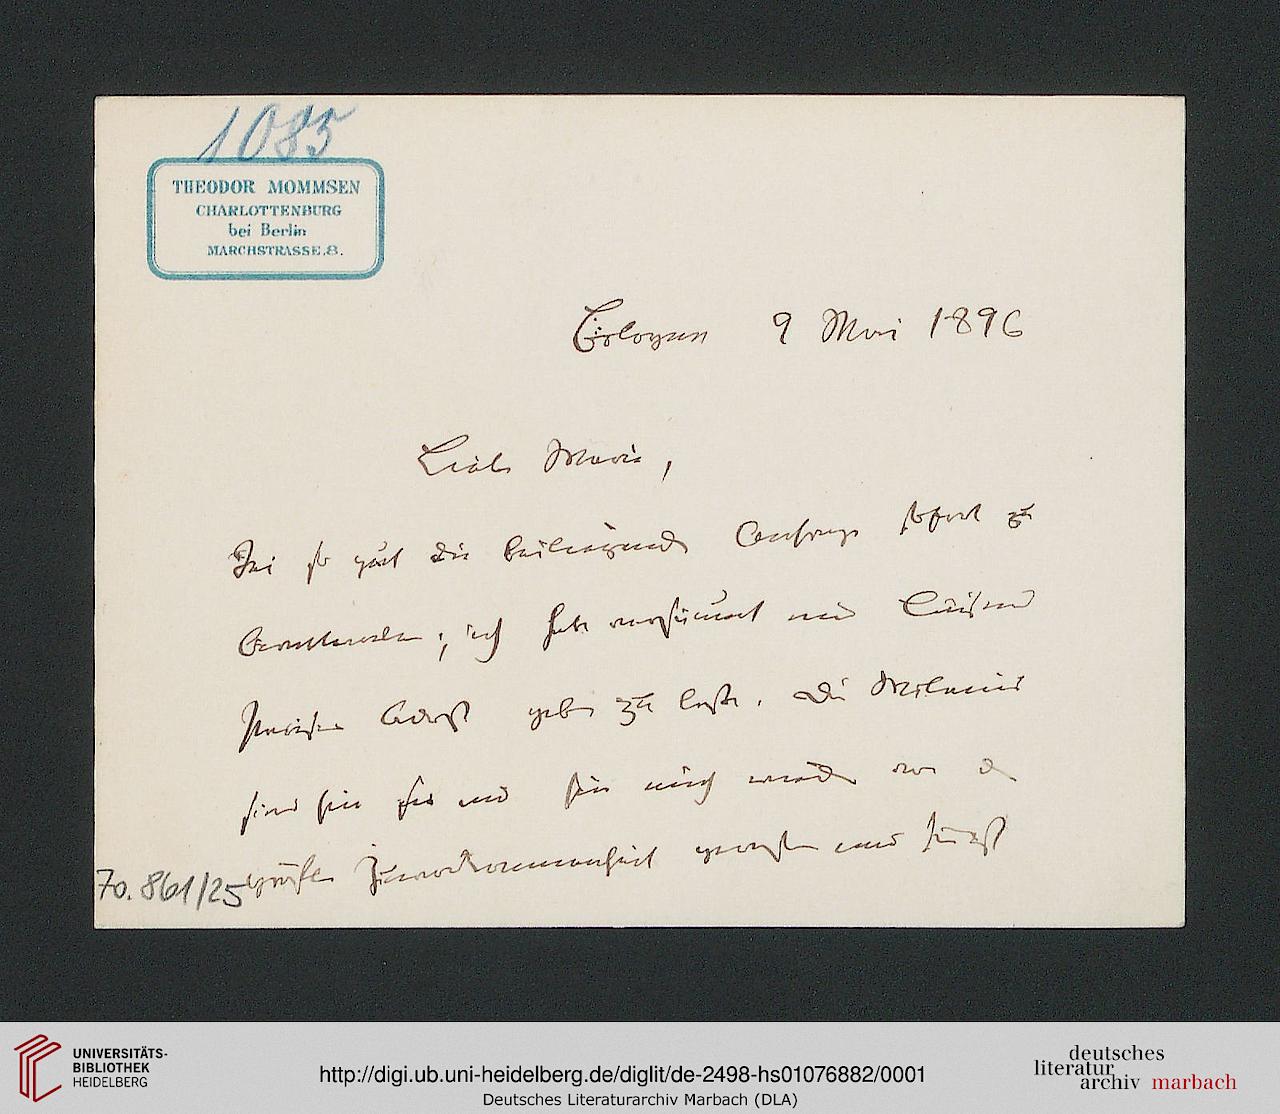 1085
THEODOR MOMMSEN
CHARLOTTENBURG
bei Berlin
MARCHSTRASSE.8.
9 Mai 1896
Liebe Marie,
Sei so gut die beiliegende Anfrage sofort zu
beantworten; ich habe versäumt mir
Pariser Adresse geben zu lassen. Die
sind hier und sie mich wieder von der
größten Zuvorkommenheit gewesen und
70.861/25
UNIVERSITÄTS-
BIBLIOTHEK
HEIDELBERG
http://digi.ub.uni-heidelberg.de/diglit/de-2498-hs01076882/0001
Deutsches Literaturarchiv Marbach (DLA)
deutsches
literatur
archiv marbach